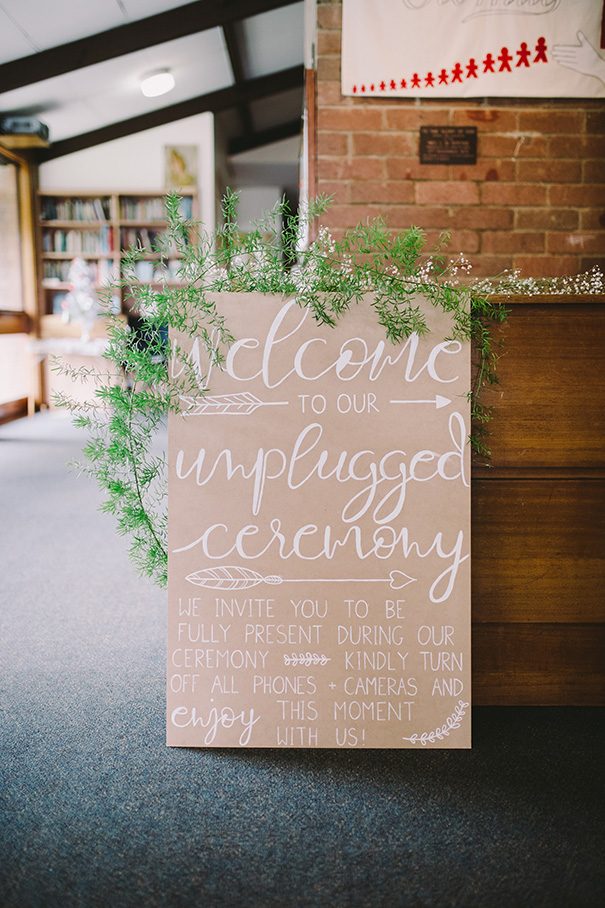 welcome
TO OUR
unplugged
ceremony
WE INVITE YOU TO BE
FULLY PRESENT DURING OUR
CEREMONY KINDLY TURN
OFF ALL PHONES + CAMERAS AND
enjoy THIS MOMENT
WITH US!